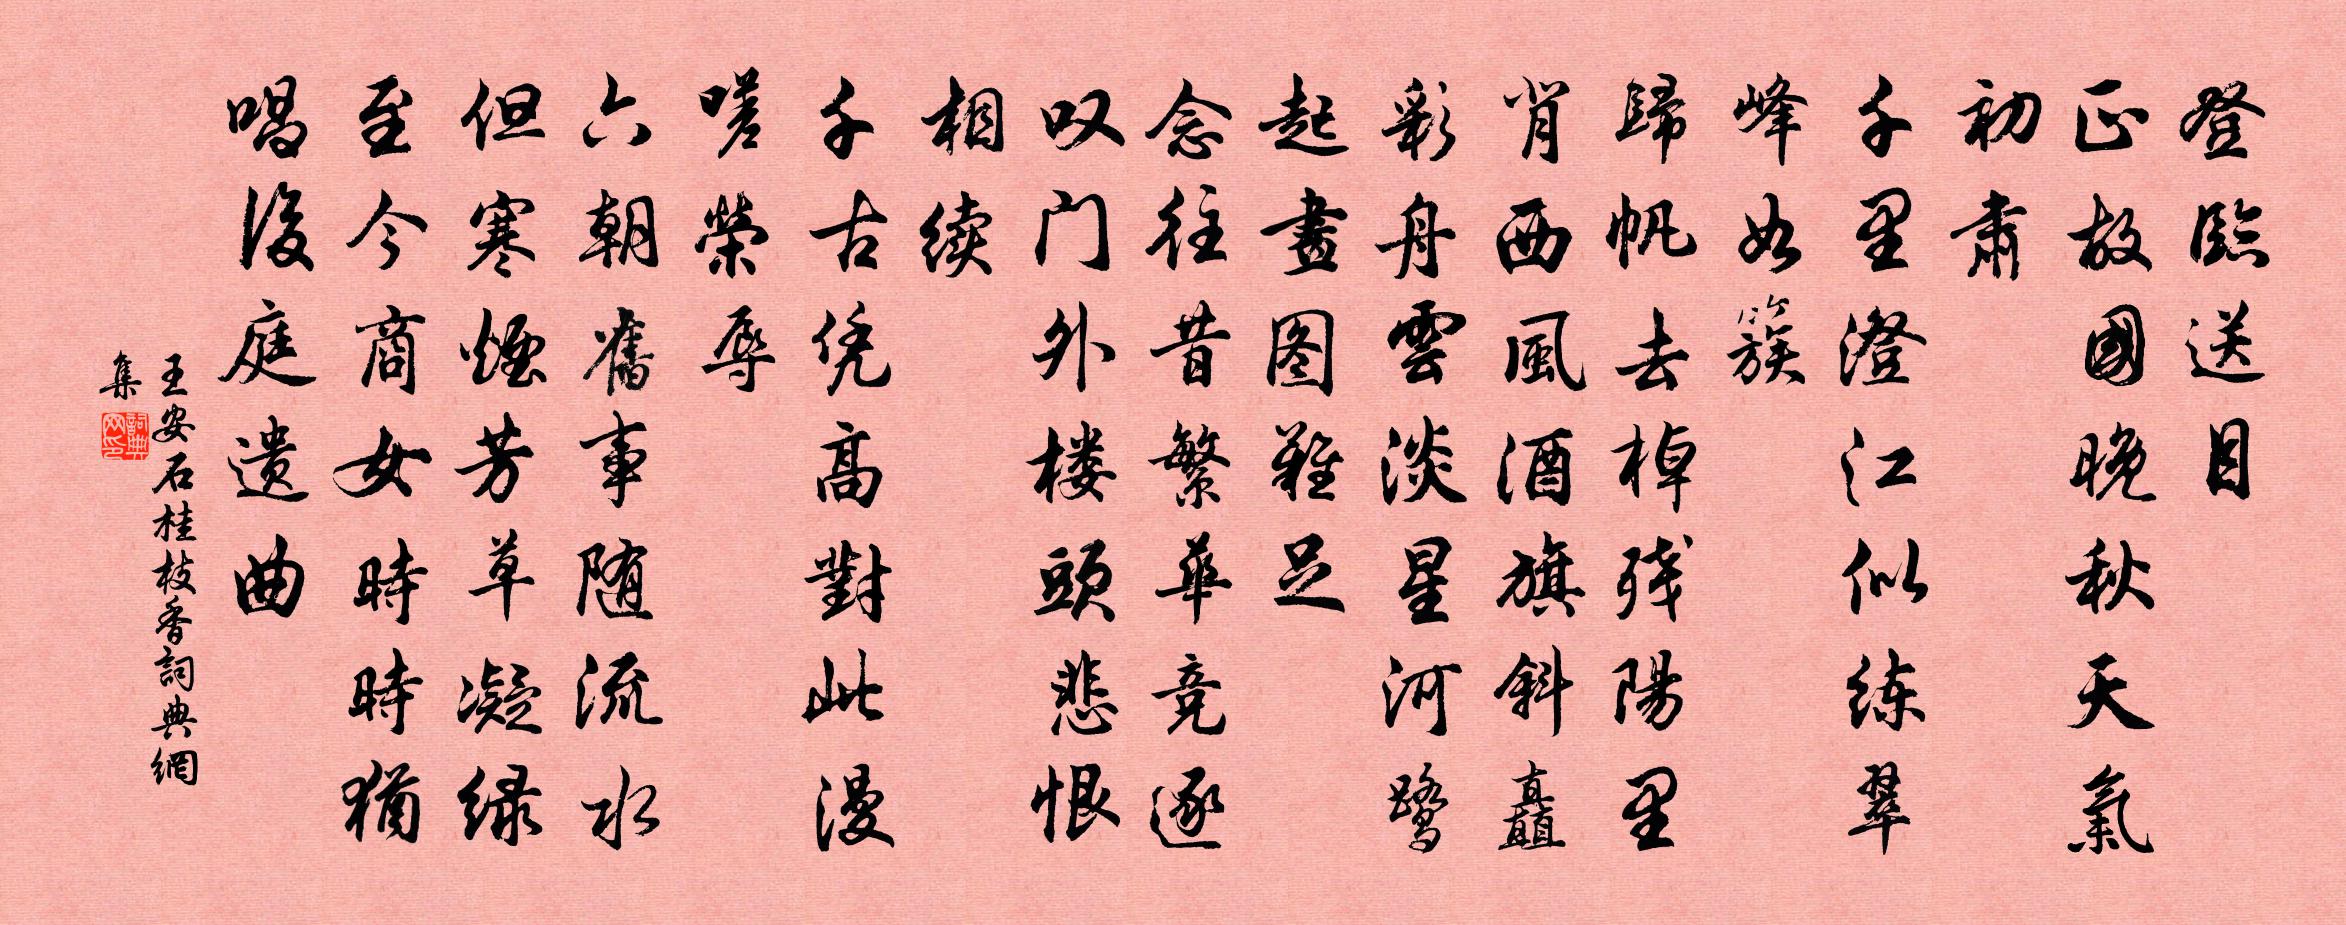 登臨送目
正故國晚秋天氣
初肅
千里澄江似练翠
峰如簇
歸帆去棹残陽里
肖西風酒旗斜矗
彩舟雲淡星河鹭
起畫图難足
念往昔繁華竞逐
叹门外楼頭悲恨
相续
千古凭高對此漫
嗟榮辱
六朝舊事随流水
但寒煙芳草凝绿
至今商女時時猶
唱後庭遗曲
王安石桂枝香詞典網
集
詞典
网印